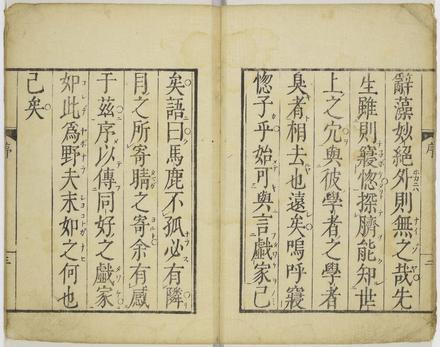 辭藻妙絕外則無之哉先
生雖則寢惚探臍能知世
上之穴與彼學者之學者
臭者相去也遠矣嗚呼寢
惚子乎始可與言戯家己
矣語曰馬鹿不孤必有隣
目之所寄睛之寄余有感
于茲序以傳同好之戯家
如此爲野夫未如之何也
己矣
序